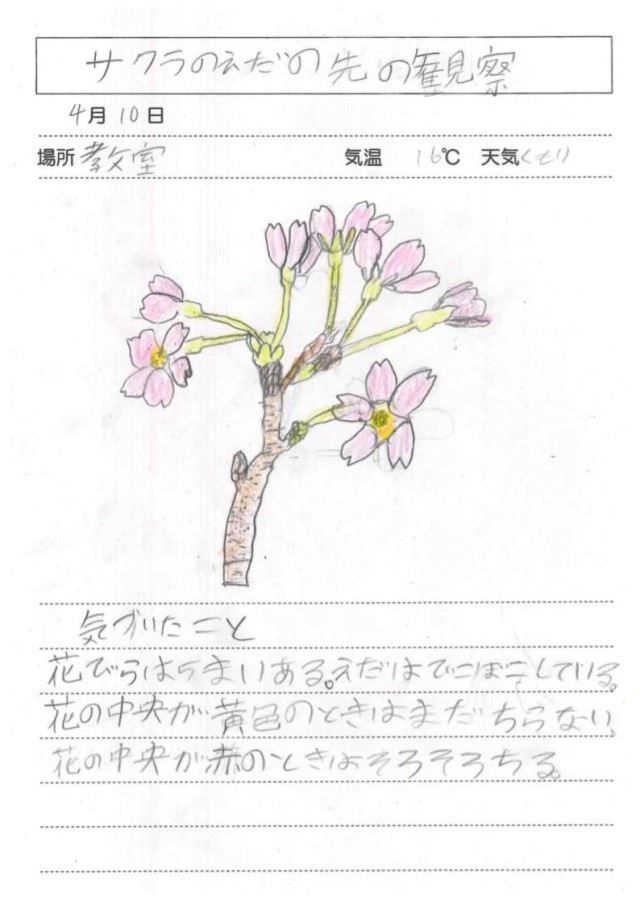 サクラのえだの先の観察
4月10日
場所 教室 気温 16℃ 天気 くもり
気づいたこと
花びらは5まいある。えだはでこぼこしている。
花の中央が黄色のときはまだちらない、
花の中央が赤のときはそろそろちる。